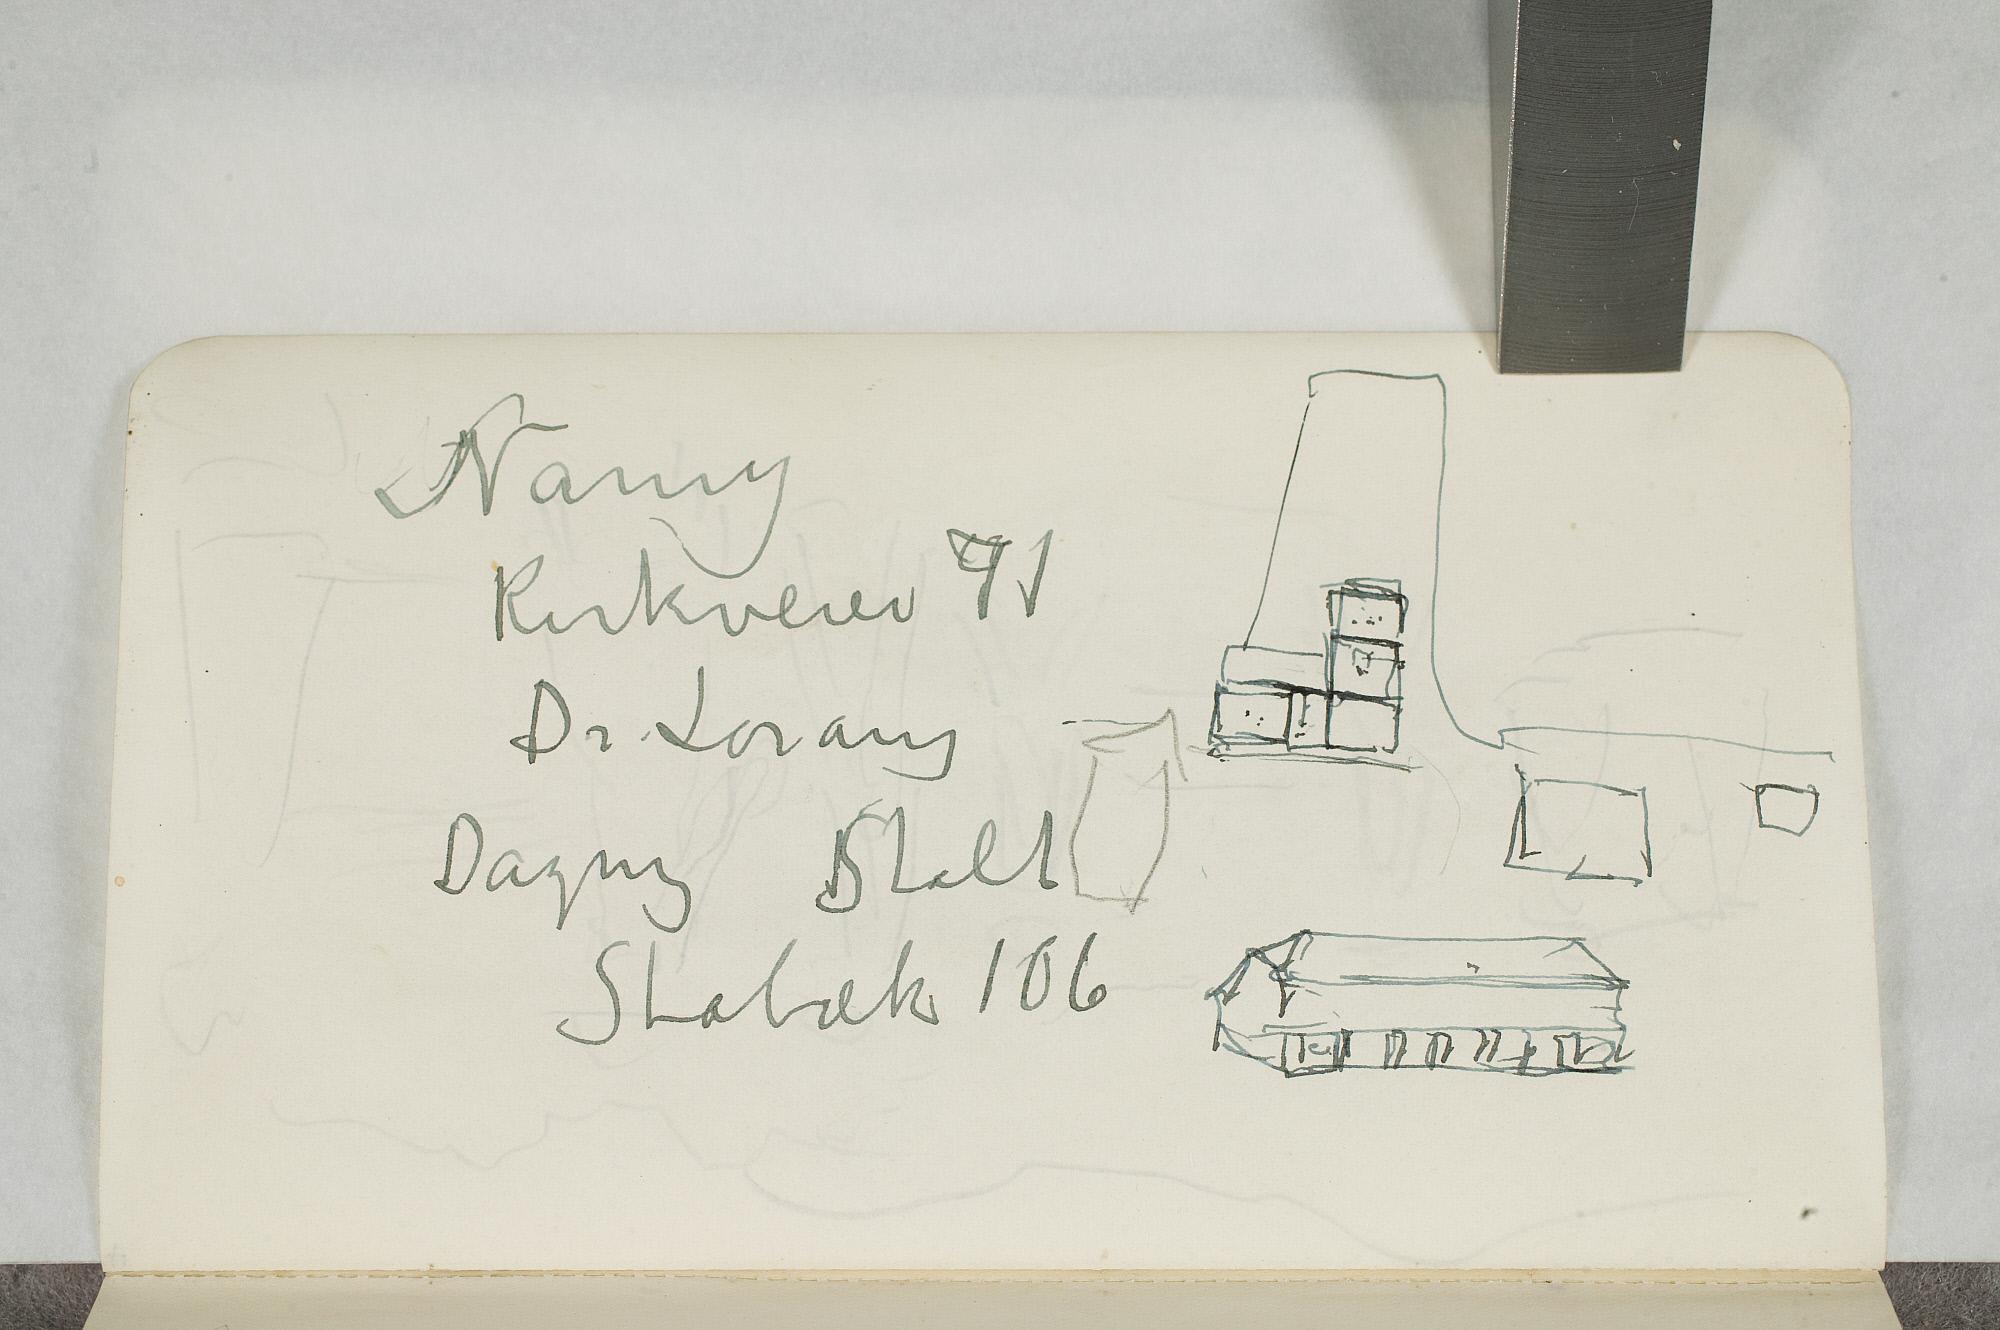 Nanny
Kirkveien 91
Dr. Lorang
Dagny Stalt
Stabæk 106